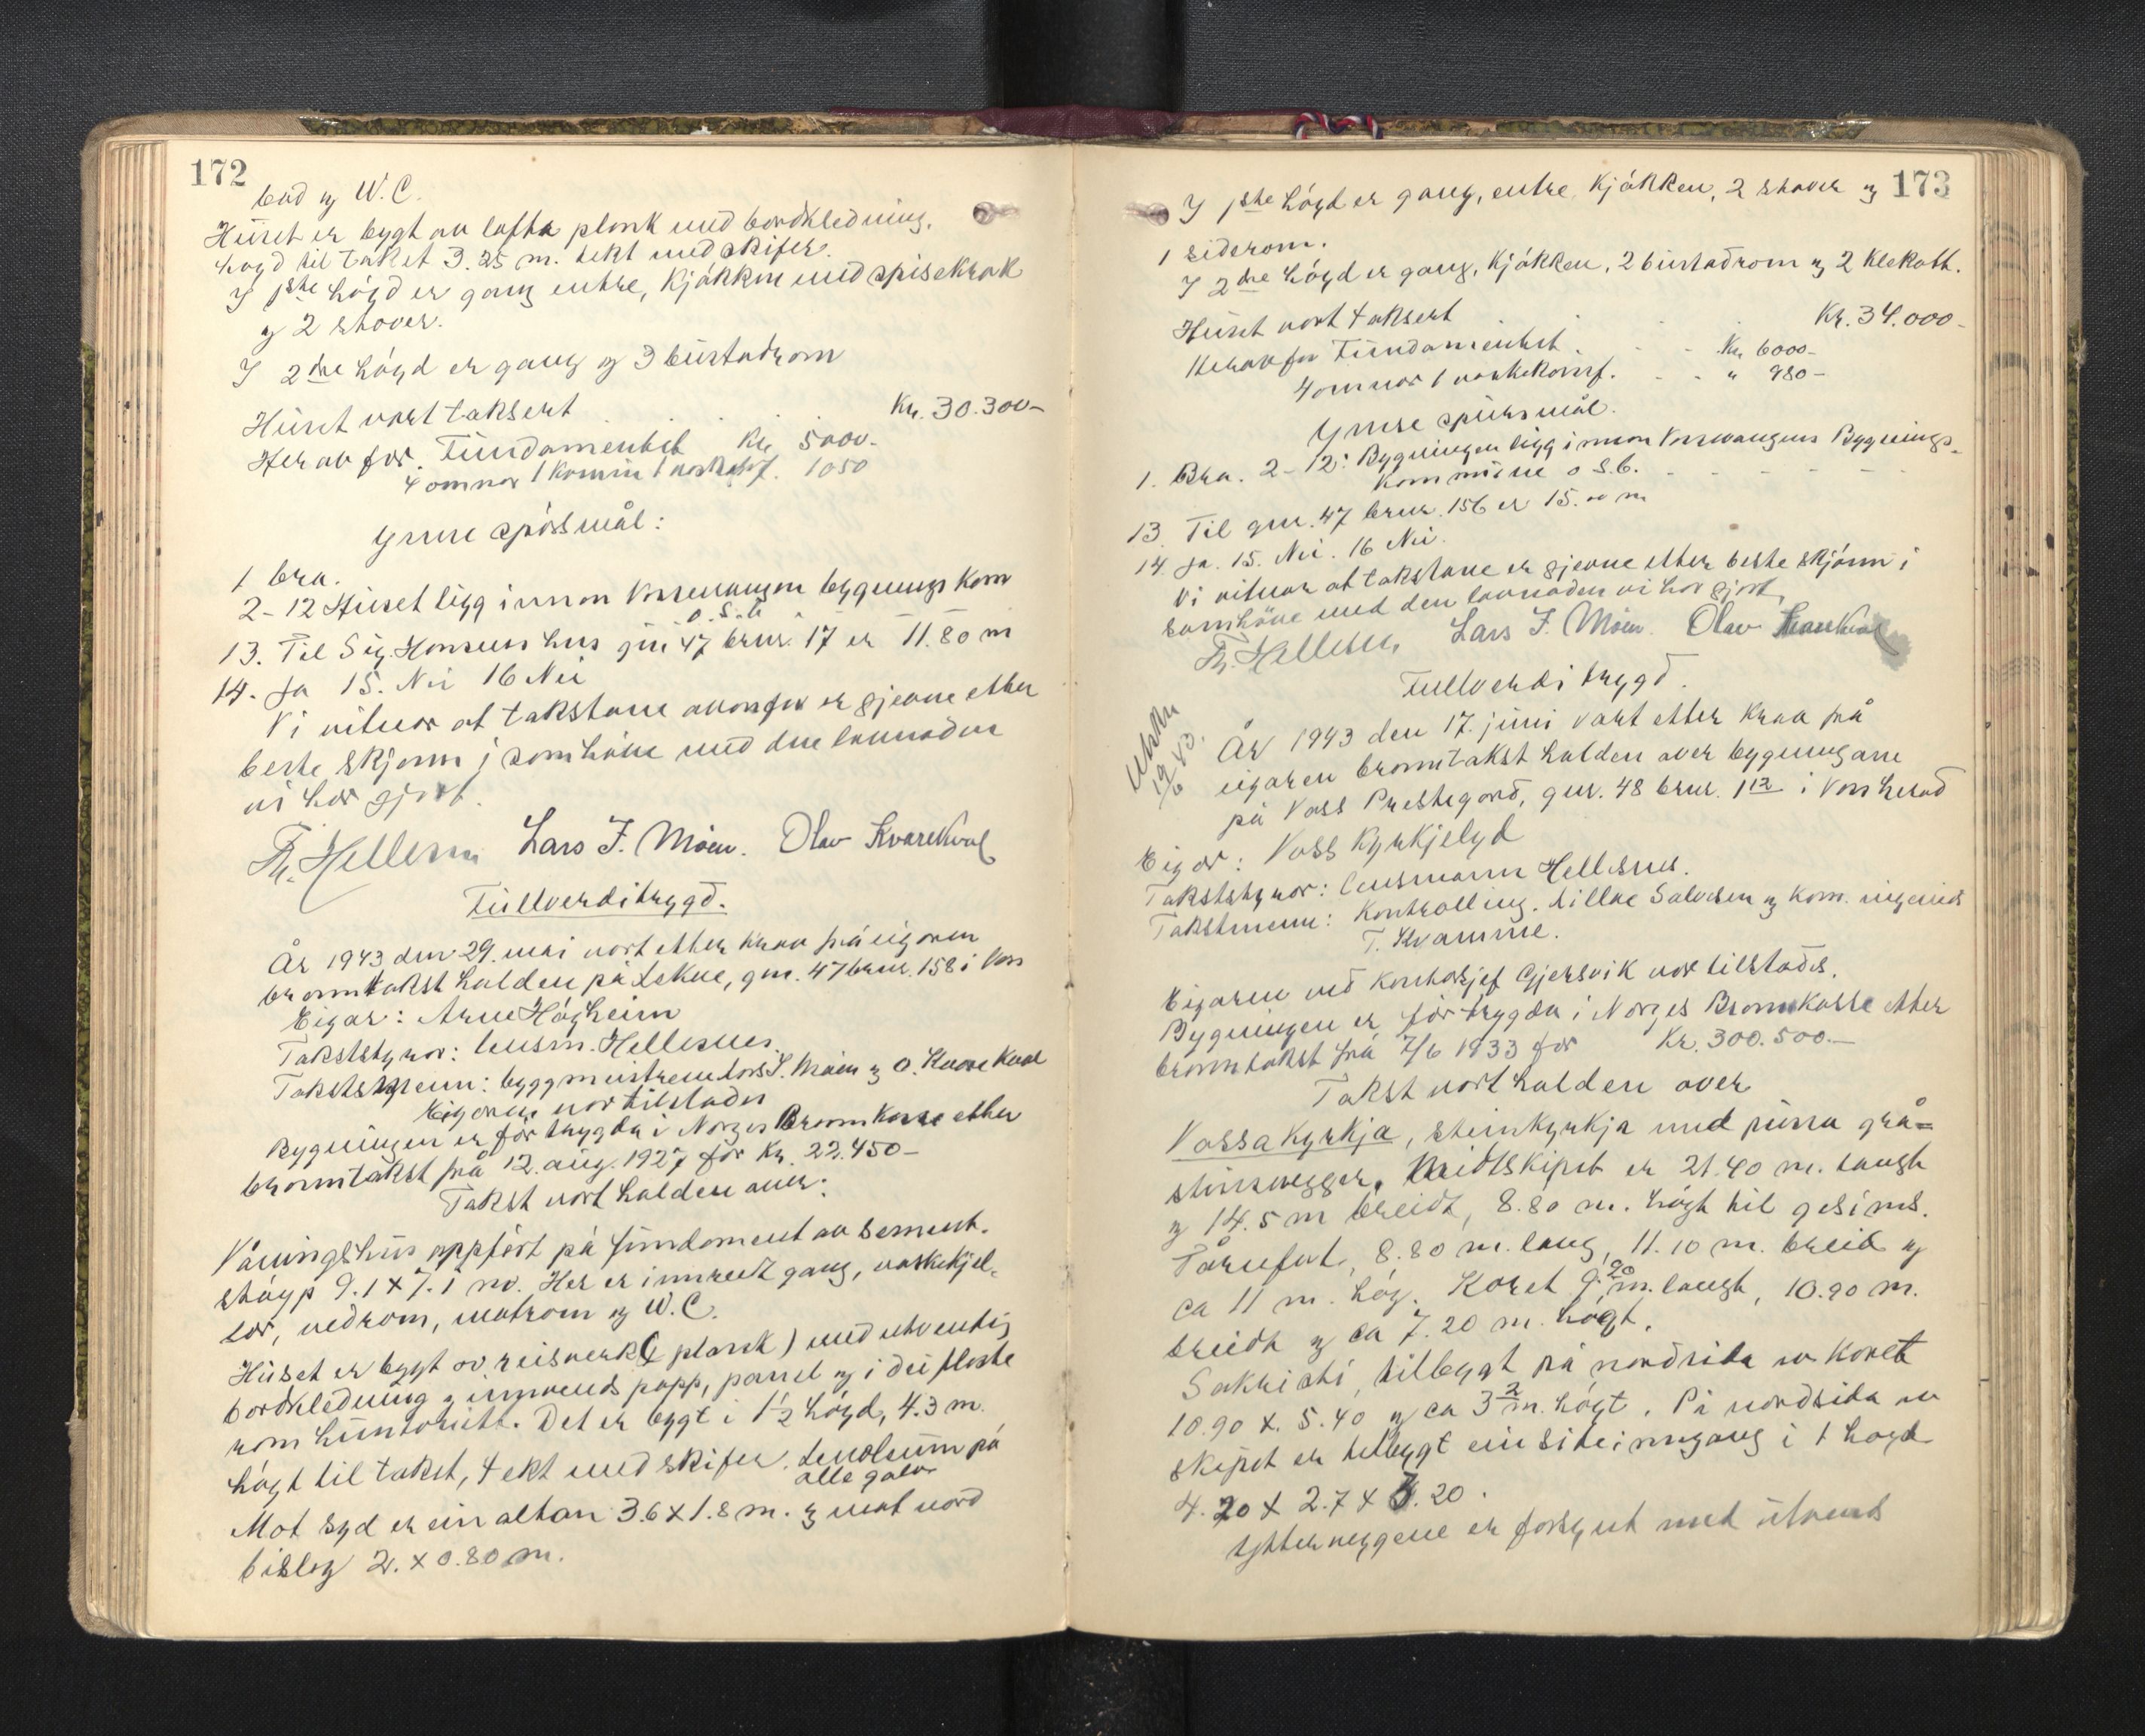 172
bad og W.C.
Huset er bygt av lafta plank med bordkledning,
høgd til taket 3.25 m. tekt med skifer.
I 1ste høgd er gang entre, kjøkken med spisekrok
og 2 stover.
I 2dre høgd er gang og 3 bustadrom
Huset vart taksert Kr. 30.300-
Herav for Fundamentet Kr. 5000-
4 omnar 1 komin 1 1050
Ymse spörsmål:
1 bra.
2-12 Huset ligg innan Vossevangen bygnings kom
o.s.b.
13. Til Sig. Hansens hus gnr 47 brnr. 17 er 11.80 m
14. Ja 15. Nei 16 Nei
Vi vitnar at takstane ovanfor er gjevne etter
beste skjønn i samhöve med den lovnaden
vi har gjort.
Th. Hellesnes Lars J. Møen. Olav Kvarekval
Fullverditrygd.
År 1943 den 29. mai vart etter krav frå eigaren
branntakst halden på Lekve, gnr. 47 brnr. 158 i Voss
Eigar: Arne Høgheim
Takststyrar: lensm. Hellesnes.
Takstsmenn: byggmeistrene Lars J. Møen og O. Kvarekval
Eigaren var tilstades
Bygningen er før trygda i Norges Brannkasse etter
branntakst frå 12. aug. 1927 for Kr. 22.450-
Takst vart halden over:
Våningshus oppført på fundament av sement-
støyp 9.1 x 7.1 m. Her er innreidt gang, vaskekjel-
lar, vedrom, matrom og W.C.
Huset er bygt av reisverk (plank) med utvendig
bordkledning og innvends papp, panel og i dei fleste
rom huntonitt. Det er bygt i 1½ høgd, 4.3 m.
høgt til taket, tekt med skifer. Lenoleum på
alle golv
Mot syd er ein altan 3.6 x 1.8 m. og mot nord
bislag 2. x 0.80 m.
173
I 1ste høgd er gang, entre, kjøkken, 2 stover og
1 siderom.
I 2dre høgd er gang, kjøkken, 2 bustadrom og 2 klekott.
Huset vart taksert Kr. 34.000-
Herav for Fundamentet . - - Kr. 6000-
4 omnar 1 vaskekomf. - - " 980-
Ymse spursmål.
1. Bra. 2-12: Bygningen ligg innan Vossevangens Bygnings-
kommune o.s.b. - - - - - -
13. Til gnr. 47 brnr. 156 er 15.00 m
14. Ja. 15. Nei. 16 Nei.
Vi vitnar at takstane er gjevne etter beste skjønn i
samhöve med den lovnaden vi har gjort.
Th. Hellesnes Lars J. Møen. Olav Kvarekval
Fullverditrygd.
19/6 43.
År 1943 den 17. juni vart etter krav frå
eigaren branntakst halden over bygningane
på Voss Prestegard, gnr. 48 brnr. 1 12 i Voss herad
Eigar: Voss Kyrkjelyd
Takststyrar: lensmann Hellesnes.
Takstmenn: Kontrolling. Salvesen og kom. ingeniør
T. Kvamme.
Eigaren ved kontorsjef Gjersvik var tilstades.
Bygningen er før trygda i Norges Brannkasse etter
branntakst frå 7/6 1933 for Kr. 300.500.-
Takst vart halden over
Vossakyrkja, steinkyrkja med pussa grå=
steinsvegger. Midtskipet er 21.40 m. langt
og 14.5 m breidt, 8.80 m. høgt til gesims.
Tårnfot, 8.80 m. lang, 11.10 m. breid og
ca 11 m. høg. Koret 9.20 m. langt, 10.90 m.
breidt og ca 7.20 m. høgt.
Sakristi, tilbygt på nordsida av koret
10.90 x. 5.40 og ca 3 2 m. høgt. På nordsida av
skipet er tilbygt ein sideinngang i 1 høgd
4.20 x 2.7 x 3.20.
Ytterveggene er forsynt med utvends